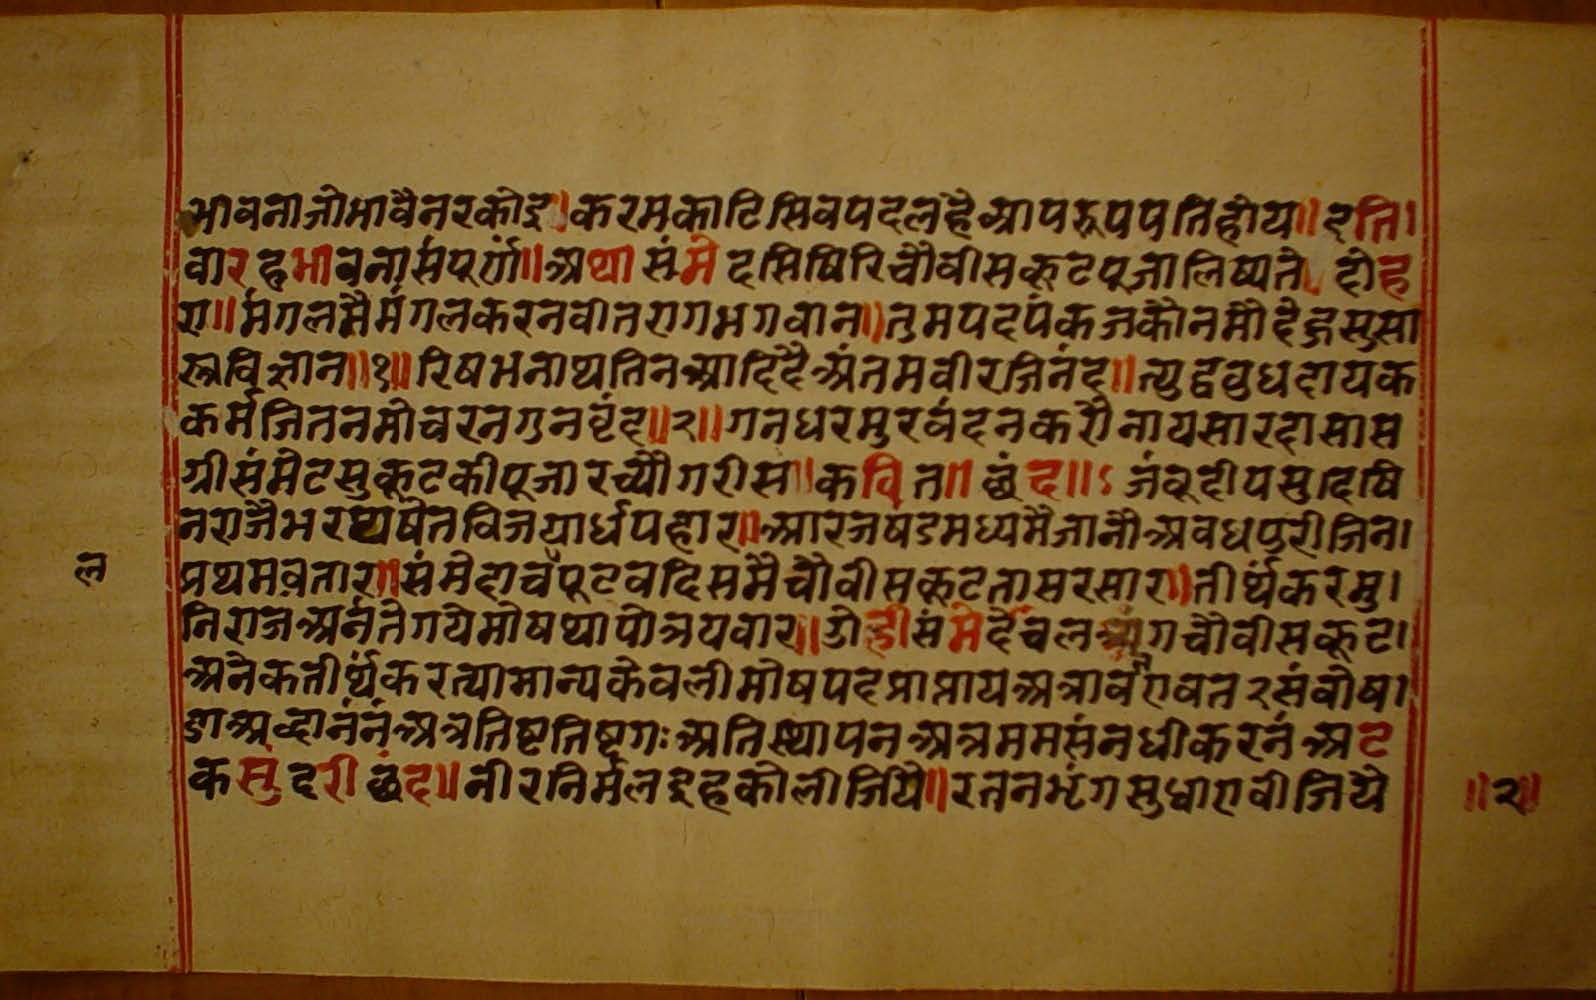 भावनाजोभावैनरकोइ।करमकाटिसिवपदलहैआपरूपपतिहोय॥इति।
वारहभावनासंपूर्ण॥अथासंमेदसिषिरिचौवीसकूटपूजालिष्यते।दोह
रा॥मंगलमैमंगलकरनवीतरागभगवान॥तुमपदपंकजकौनमौदेहुसुसा
स्त्रविज्ञान॥१॥रिषभनाथतिनआदिदैअंतमवीरजिनंद॥
कर्मजितनमौचरनगुनवृंद॥२॥गनधरमुरवंदनकरौनायसारदासास
ग्रीसंमेटसुकूटकीपूजारच्यौगरीस॥कवित॥छंद॥ऽजंवूदीपसुदिषि
नराजैभरथ्यषेतविजयार्धपहार॥आरजषंडमध्यमैजानौअवधपुरीजिन।
प्रथमवतार॥संमेदाचंपूटवदिसमैचौवीसकूटतासरसार॥तीर्थंकरमु।
निराजअनंतेगयेमोषथापोत्रयवार॥उोंह्रींसंमेदचलश्रंगचौवीसकूट।
अनेकतीर्थंकरत्यामान्यकेवलीमोषपदप्राप्ताय
तिष्टतिष्टगःअतिस्थापनअत्रममसंनधीकरनंअट
कसुंदरीछंद॥नीरनिर्मलद्रहकौलीजिये॥रतनभृंगसुधाएवीजिये
॥२॥
ल